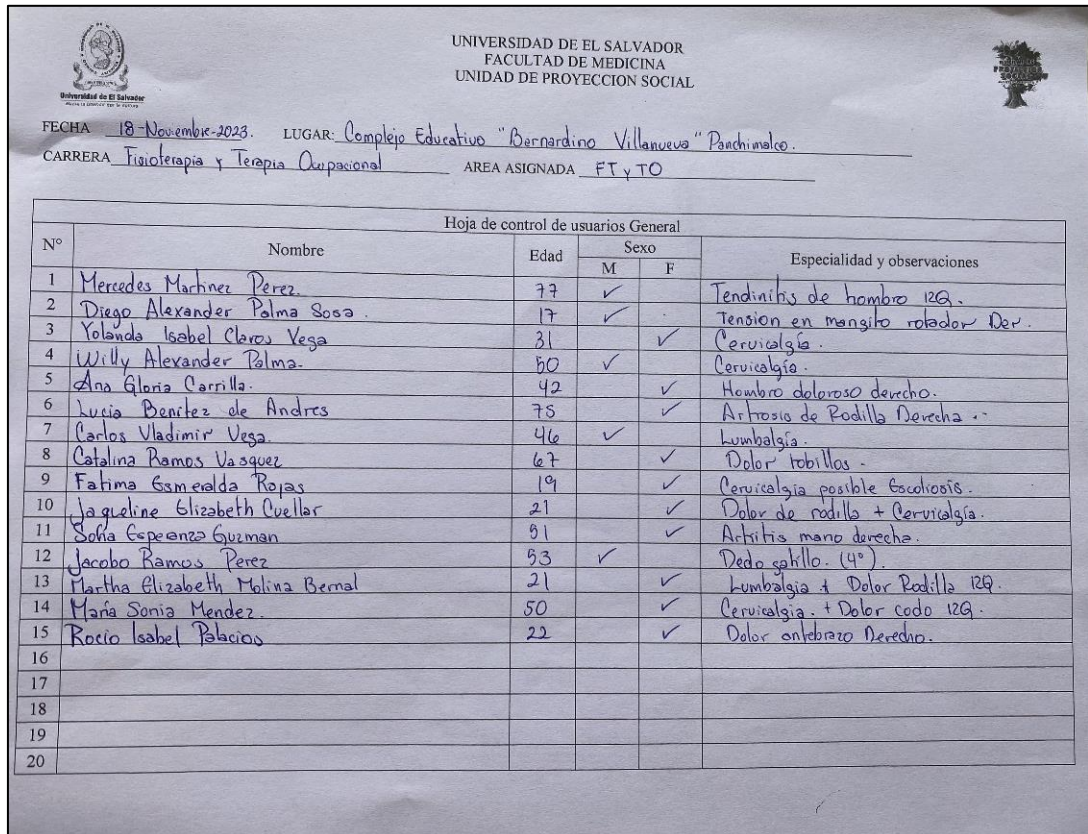 Universidad de El Salvador
UNIVERSIDAD DE EL SALVADOR
FACULTAD DE MEDICINA
UNIDAD DE PROYECCION SOCIAL
FECHA 18-Noviembre-2023. LUGAR: Complejo Educativo "Bernardino Villanueva" Panchimalco.
CARRERA Fisioterapia y Terapia Ocupacional AREA ASIGNADA FT y TO
Hoja de control de usuarios General
N° Nombre Edad Sexo Especialidad y observaciones
M F
1 Mercedes Martinez Perez. 77 ✓ Tendinitis de hombro IZQ.
2 Diego Alexander Palma Sosa. 17 ✓ Tension en mangito rotador Der.
3 Yolanda Isabel Claros Vega 31 ✓ Cervicalgía.
4 Willy Alexander Palma. 50 ✓ Cervicalgía.
5 Ana Gloria Carrilla. 42 ✓ Hombro doloroso derecho.
6 Lucia Benitez de Andres 75 ✓ Artrosis de Rodilla Derecha.
7 Carlos Vladimir Vega. 46 ✓ Lumbalgía.
8 Catalina Ramos Vasquez 67 ✓ Dolor tobillos.
9 Fatima Esmeralda Rojas 19 ✓ Cervicalgia posible Escoliosis.
10 Jaqueline Elizabeth Cuellar 21 ✓ Dolor de rodilla + Cervicalgía.
11 Sofia Esperanza Guzman 51 ✓ Artritis mano derecha.
12 Jacobo Ramos Perez 53 ✓ Dedo gatillo. (4°).
13 Martha Elizabeth Molina Bernal 21 ✓ Lumbalgia + Dolor Rodilla IZQ.
14 María Sonia Mendez. 50 ✓ Cervicalgia. + Dolor codo IZQ.
15 Rocio Isabel Palacios 22 ✓ Dolor antebrazo Derecho.
16
17
18
19
20